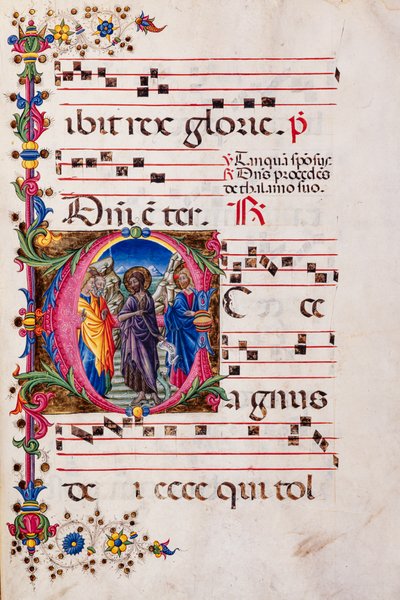 ibit rex glorie. p̄
℣ Tanquā sposus
℟ Dn̄s procedēs
de thalamo suo.
Dn̄i ē ter. ℟
E C ce
a gnus
de i ecce qui tol